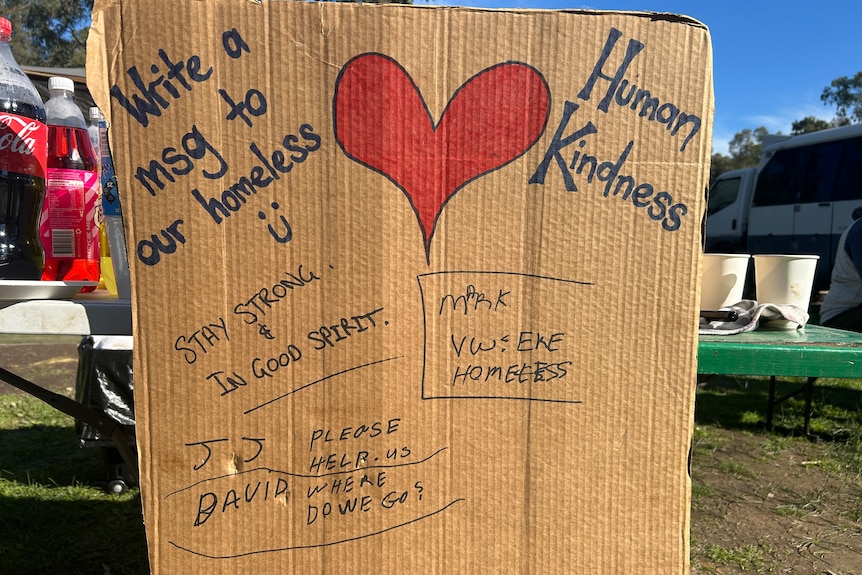 Write a
msg to
our homeless
Human
Kindness
STAY STRONG.
&
IN GOOD SPIRIT.
MARK
HOMELESS
JJ PLEASE
HELP. US
DAVID WHERE
DO WE GO?
Cola